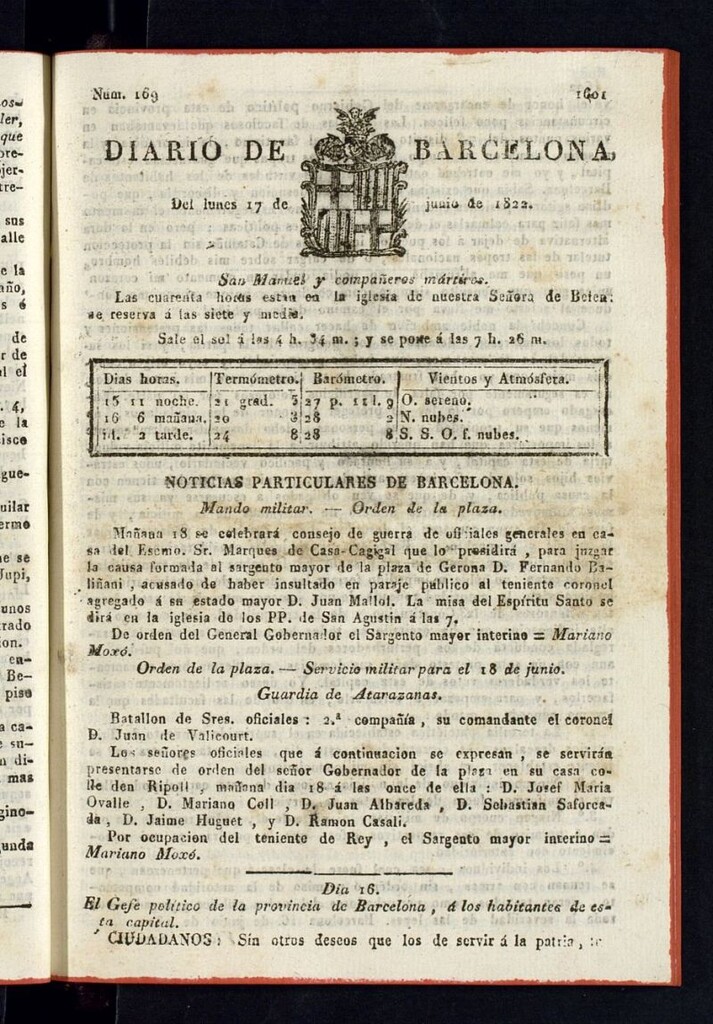 Num. 169
1601
DIARIO DE BARCELONA,
Del lunes 17 de junio de 1822.
San Manuel y compañeros mártires.
Las cuarenta horas estan en la iglesia de nuestra Señora de Belen:
se reserva á las siete y media.
Sale el sol á las 4 h. 34 m. ; y se pone á las 7 h. 26 m.
Dias horas. Termómetro. Barómetro. Vientos y Atmósfera.
15 11 noche. 21 grad. 5 27 p. 11 l. 9 O. sereno.
16 6 mañana. 20 3 28 2 N. nubes.
id. 2 tarde. 24 8 28 8 S. S. O. f. nubes.
NOTICIAS PARTICULARES DE BARCELONA.
Mando militar. — Orden de la plaza.
Mañana 18 se celebrará consejo de guerra de oficiales generales en ca-
sa del Escmo. Sr. Marques de Casa-Cagigal que lo presidirá , para juzgar
la causa formada al sargento mayor de la plaza de Gerona D. Fernando Ba-
liñani , acusado de haber insultado en parage público al teniente coronel
agregado á su estado mayor D. Juan Mallol. La misa del Espíritu Santo se
dirá en la iglesia de los PP. de San Agustin á las 7.
De orden del General Gobernador el Sargento mayor interino = Mariano
Moxó.
Orden de la plaza. — Servicio militar para el 18 de junio.
Guardia de Atarazanas.
Batallon de Sres. oficiales : 2.ª compañía , su comandante el coronel
D. Juan de Valicourt.
Los señores oficiales que á continuacion se expresan , se servirán
presentarse de orden del señor Gobernador de la plaza en su casa ca-
lle den Ripoll , mañana dia 18 á las once de ella : D. Josef Maria
Ovalle , D. Mariano Coll , D. Juan Albareda , D. Sebastian Saforca-
da , D. Jaime Huguet , y D. Ramon Casali.
Por ocupacion del teniente de Rey , el Sargento mayor interino =
Mariano Moxó.
Dia 16.
El Gefe político de la provincia de Barcelona , á los habitantes de es-
ta capital.
CIUDADANOS : Sin otros deseos que los de servir á la patria ,